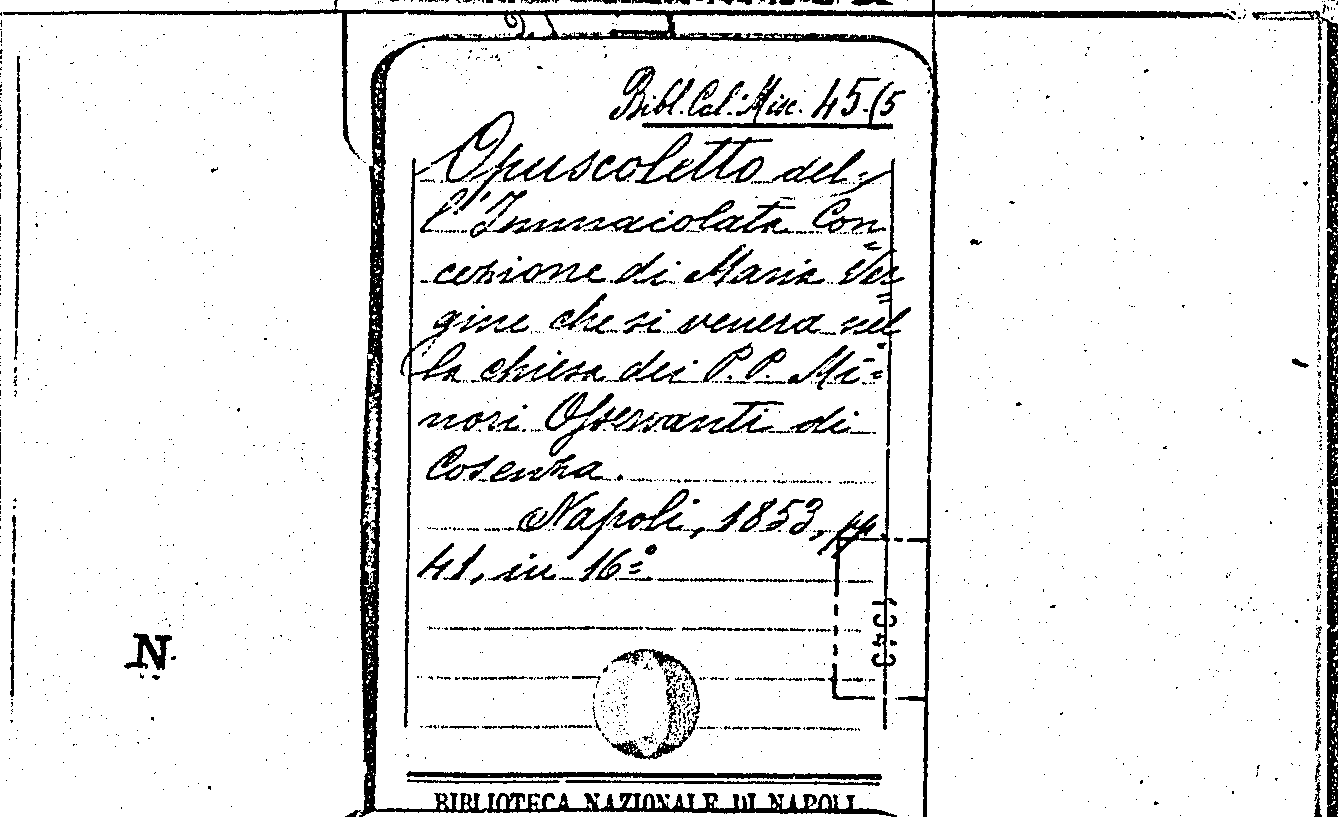 Bibl. Cal. Misc. 45.(5
Opuscoletto del-
l'Immacolata Con=
cezione di Maria Ver=
gine che si venera nel=
la chiesa dei P.P. Mi=
nori Osservanti di
Cosenza.
Napoli, 1853, pp
41, in 16º
N
BIBLIOTECA NAZIONALE DI NAPOLI